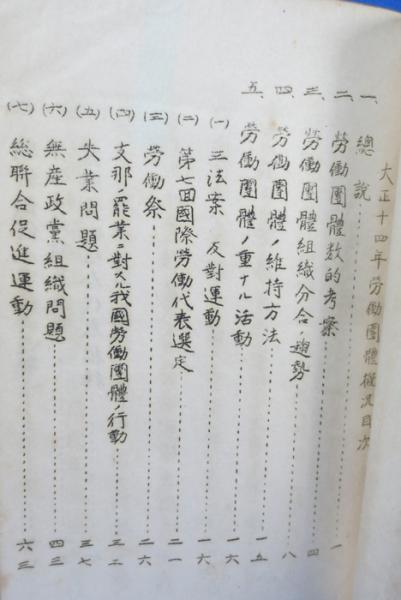 大正十四年労働團體概況目次
一、總説
二、勞働團體数的考察………一
三、勞働團體組織分合ノ趨勢………四
四、勞働團體ノ維持方法………八
五、勞働團體ノ重ナル活動………一五
(一)三法案反対運動………一六
(二)第七回國際労働代表選定………二一
(三)労働祭………二六
(四)支那ノ罷業ニ對スル我國労働團體ノ行動………三二
(五)失業問題………三七
(六)無産政黨組織問題………四三
(七)総聯合促進運動………六三